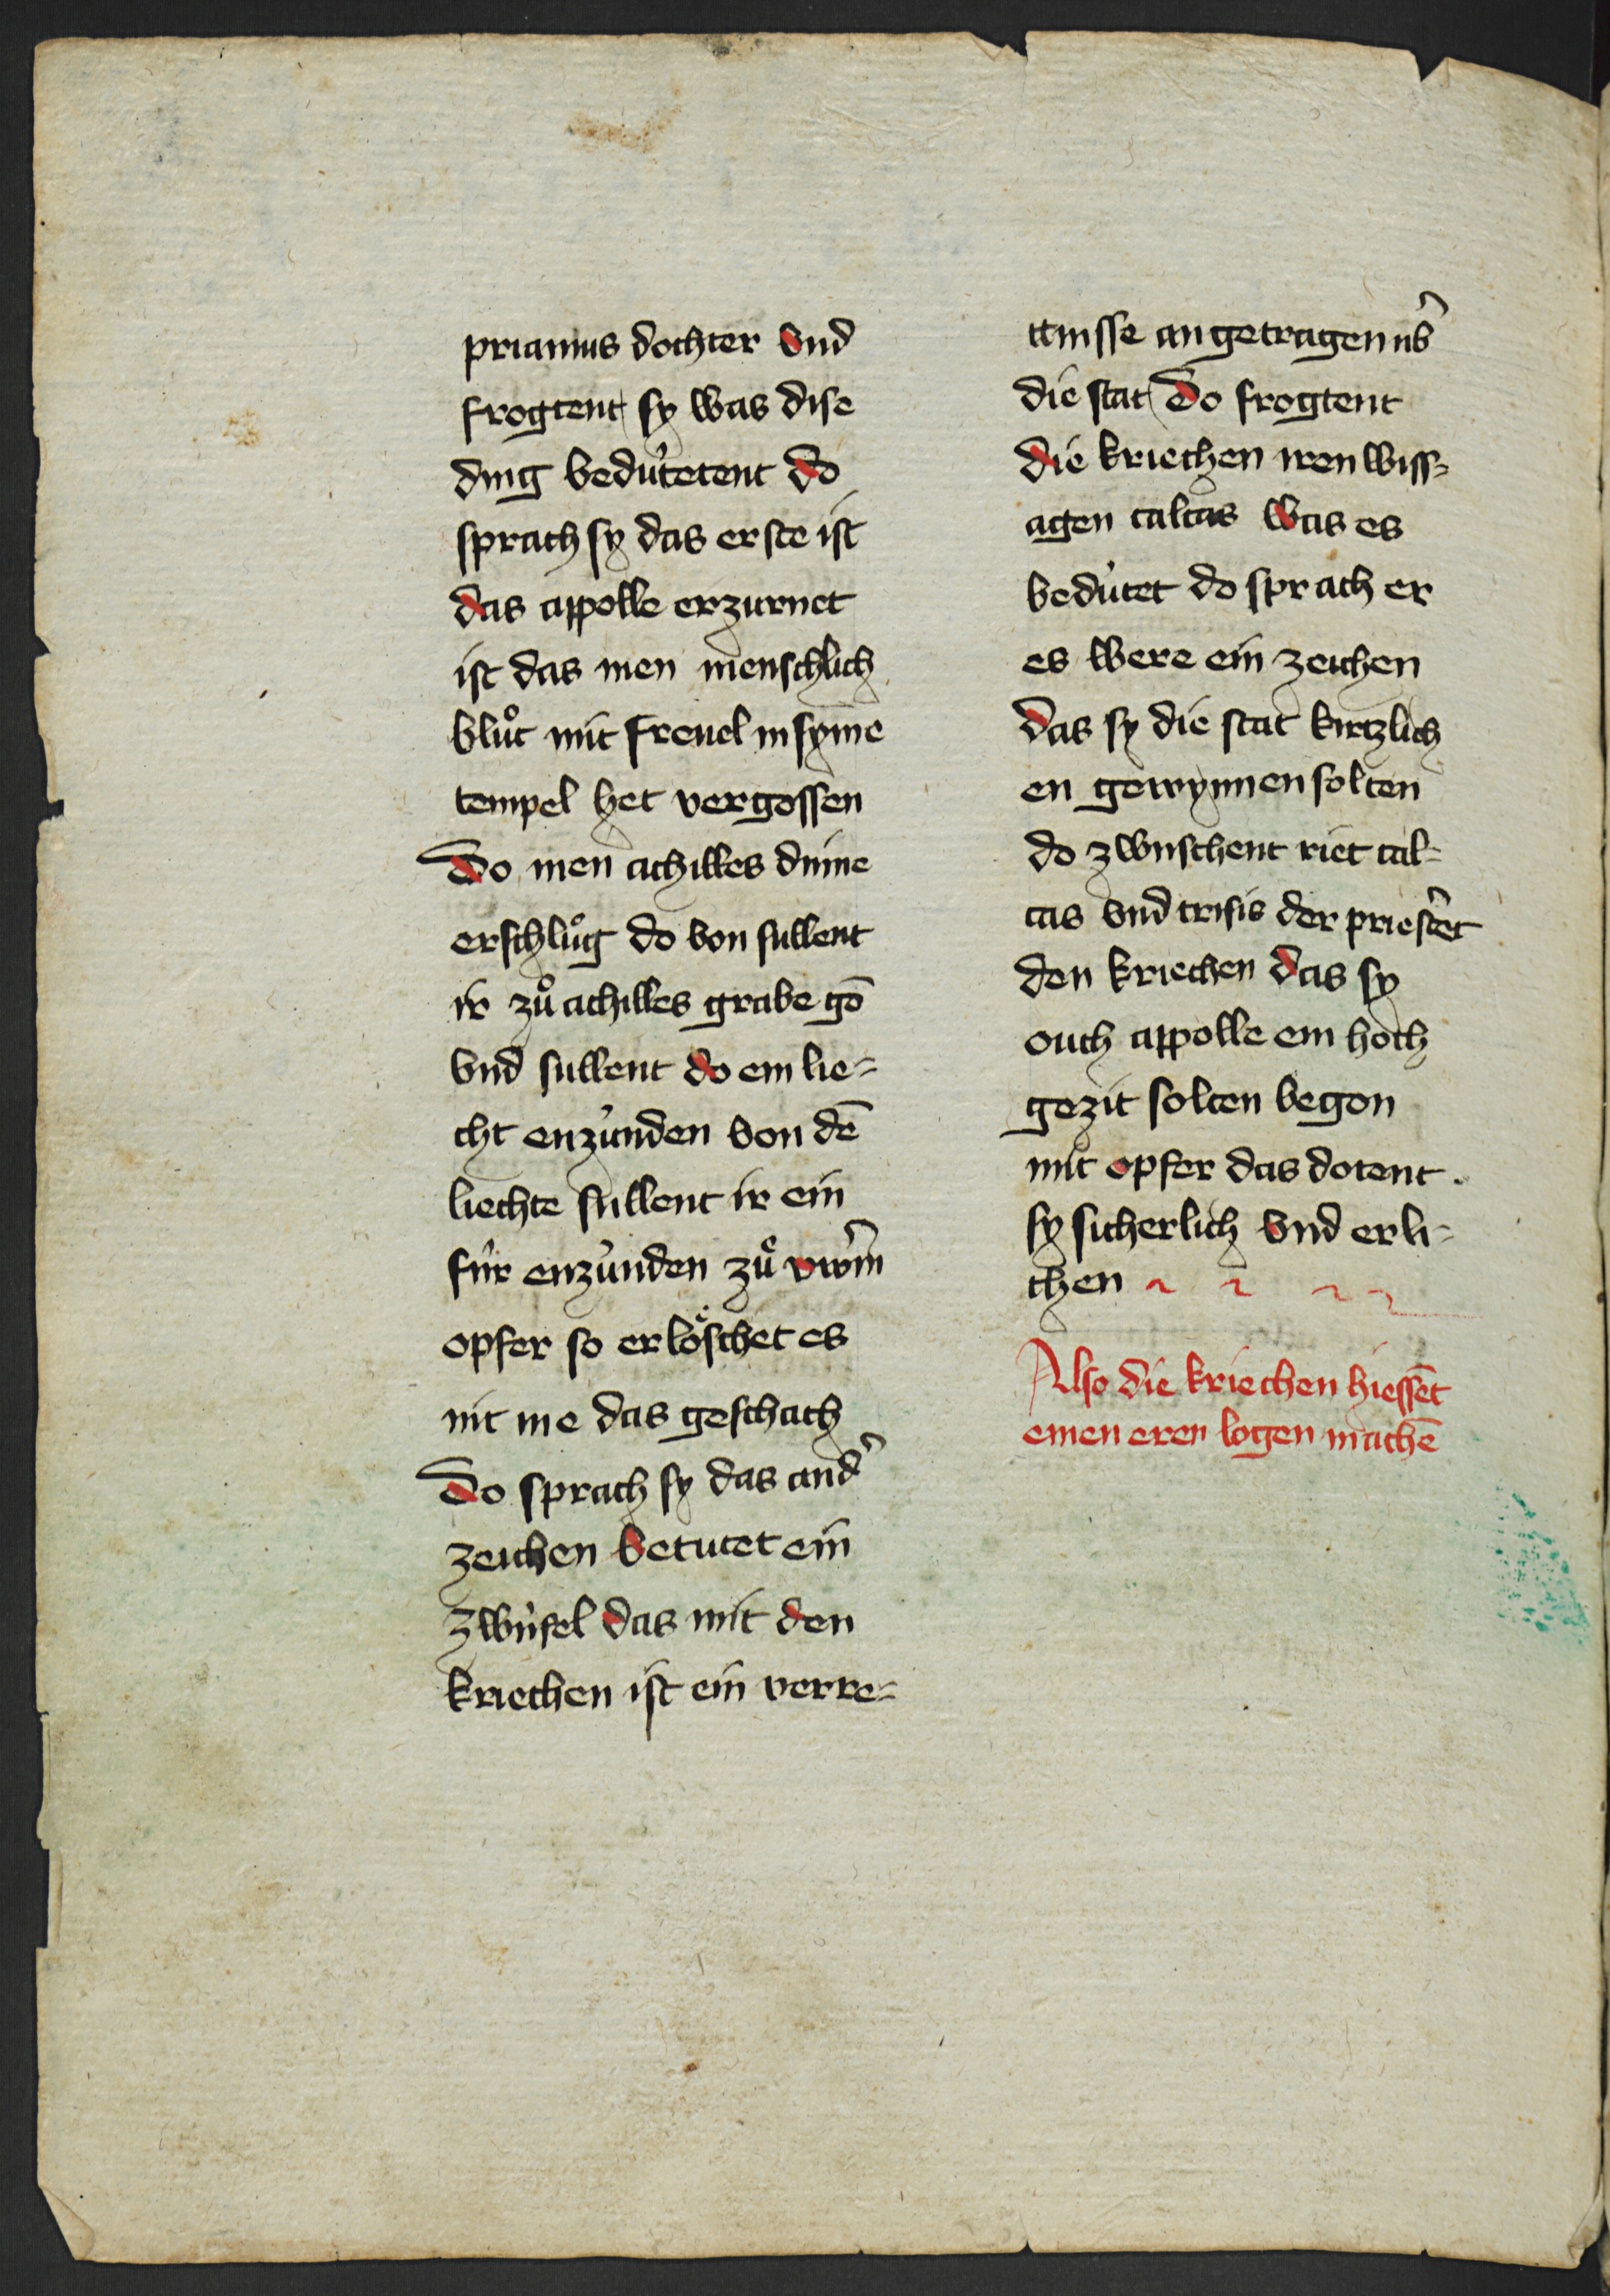 priamus dochter vnd
frogtent sy was dise
ding bedútetent do
sprach sy das erste ist
das appolle erzurnet
ist das men menschlich
bluͦt mit freuel in syme
tempel het vergossen
Do men achilles dinne
erschluͦg do von sullent
ir zuͦ achilles grabe gō
vnd sullent do ein lie-
cht enzúnden von dē
liechte sullent ir ein
fúr enzúnden zuͦ vwrm̄
opfer so erlöschet es
nit me das geschach
Do sprach sy das and͛
zeichen betutet ein
zwúfel das mit den
kriechen ist ein verre-
ttnisse an getragen úb͛
die stat Do frogtent
die kriechen iren wiss-
agen calcas was es
bedútet do sprach er
es were ein zeichen
das sy die stat kirtzlich
en gewynnen solten
do zwuschent riet cal-
cas vnd crisis der priester
den kriechen das sy
ouch appolle ein hoch
gezit solten begon
mit opfer das dotent
sy sicherlich vnd erli-
chen
Also die kriechen hiessēt
einen eren logen machē